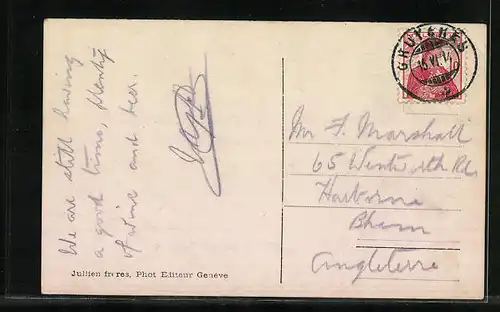 We are still having
a good time, plenty
of wine and beer.
Jullien frères, Phot Editeur Genève
GRUYÈRES
Mr F. Marshall
65 Wentworth Rd.
Harborne
Bham
Angleterre